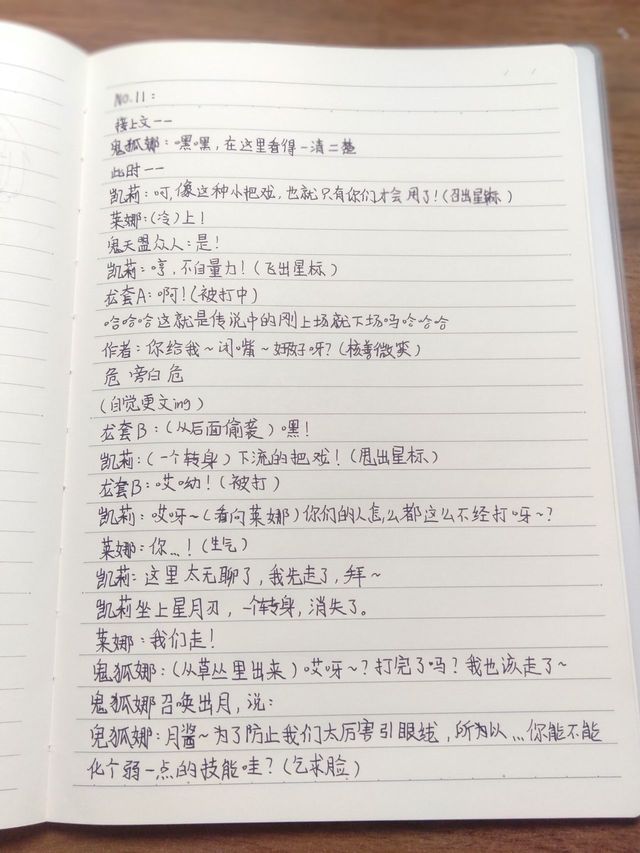 No.11:
接上文——
鬼狐娜:嘿嘿,在这里看得一清二楚
此时——
凯莉:呵,像这种小把戏,也就只有你们才会用了!(召出星标)
莱娜:(冷)上!
鬼天盟众人:是!
凯莉:哼,不自量力!(飞出星标)
龙套A:啊!(被打中)
哈哈哈这就是传说中的刚上场就下场吗哈哈哈
作者:你给我~闭嘴~好好呀?(核善微笑)
危 旁白 危
(自觉更文ing)
龙套B:(从后面偷袭)嘿!
凯莉:(一个转身)下流的把戏!(甩出星标)
龙套B:哎呦!(被打)
凯莉:哎呀~(看向莱娜)你们的人怎么都这么不经打呀~?
莱娜:你...!(生气)
凯莉:这里太无聊了,我先走了,拜~
凯莉坐上星月刃,一个转身,消失了。
莱娜:我们走!
鬼狐娜:(从草丛里出来)哎呀~?打完了吗?我也该走了~
鬼狐娜召唤出月,说:
鬼狐娜:月酱~为了防止我们太厉害引眼线,所为以...你能不能
化个弱一点的技能哇?(乞求脸)